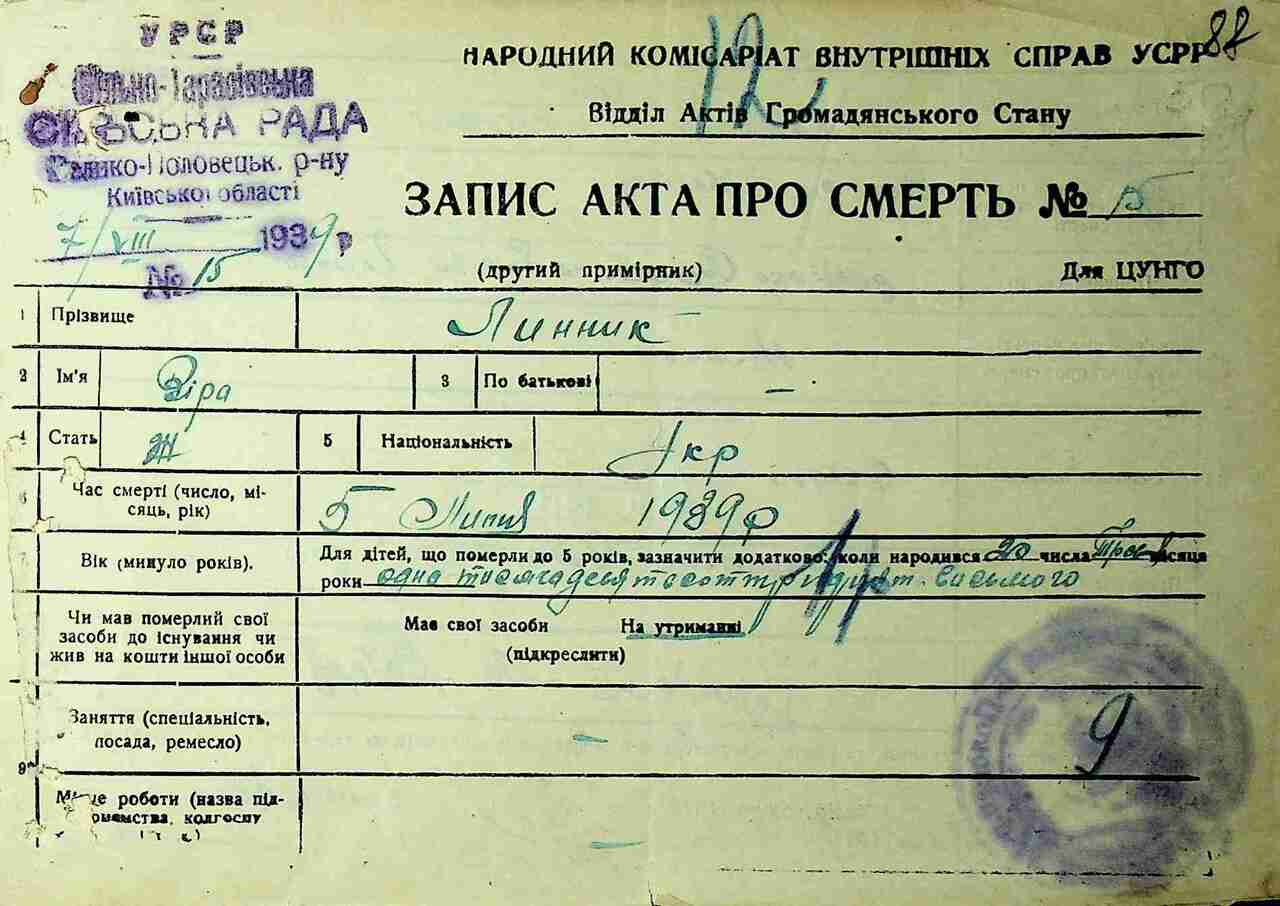 УРСР
Вільно-Тарасівська
СІЛЬСЬКА РАДА
Велико-Половецьк. р-ну
Київської області
7/VIII 1939 р
№ 15
88
НАРОДНИЙ КОМІСАРІАТ ВНУТРІШНІХ СПРАВ УСРР
12
Відділ Актів Громадянського Стану
ЗАПИС АКТА ПРО СМЕРТЬ № 15
(другий примірник) Для ЦУНГО
1 Прізвище Линник
2 Ім'я Віра 3 По батькові —
4 Стать Ж 5 Національність Укр
6 Час смерті (число, місяць, рік) 5 Липня 1939 р
7 Вік (минуло років). Для дітей, що померли до 5 років, зазначити додатково: коли народився 20 числа Трав місяця
роки одна тисяча девятсот тридцят. восьмого
Чи мав померлий свої
засоби до існування чи
жив на кошти іншої особи
Має свої засоби На утриманні
(підкреслити)
Заняття (спеціальність,
посада, ремесло) —
9
9
Місце роботи (назва під-
колгоспу
—